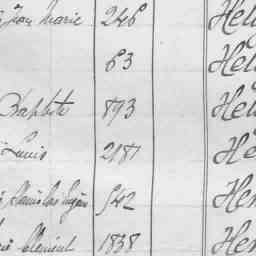 Jean Marie 246 Hél
63 Hél
Baptiste 893 Hél
Louis 2181 Hé
Stanislas Eugène 542 Hen
Clément 1838 Hen